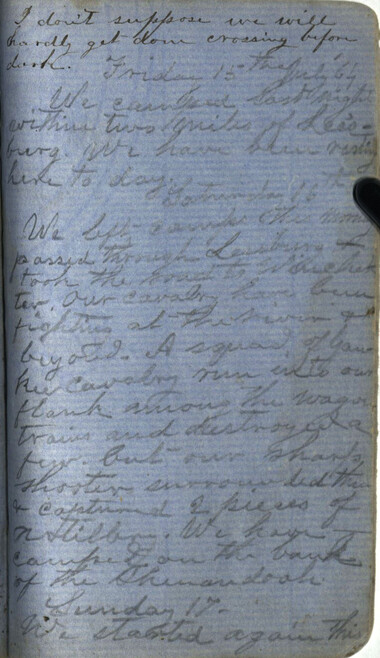 I don't suppose we will
hardly get done crossing before
dark.
Friday 15th July 64
We camped last night
within two miles of Lees-
burg. We have been resting
here to day.
Saturday 16th
We left camp this morn
passed through Leesburg &
took the road to Winches
ter. Our cavalry have been
fighting at the river &
beyond. A squad of Yan
kee cavalry run into our
flank among the wagon
trains and destroyed a
few. but our sharp
shooters surrounded them
& captured 2 pieces of
artillery. We have
camped on the bank
of the Shenandoah.
Sunday 17-
We started again this